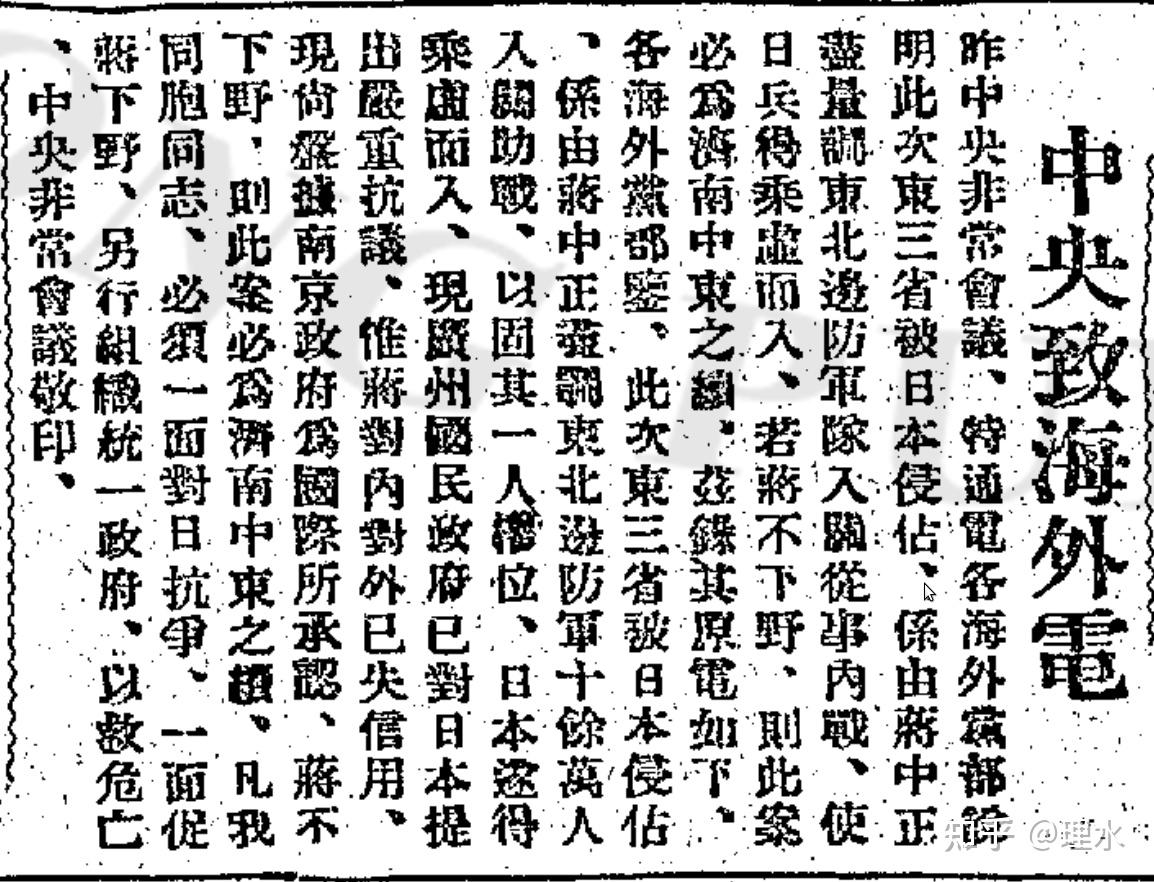 中央致海外電
昨中央非常會議、特通電各海外黨部
明此次東三省被日本侵佔、係由蔣中正
盡量調東北邊防軍隊入關從事內戰、使
日兵得乘虛而入、若蔣不下野、則此案
必爲濟南中東之續、茲錄其原電如下、
各海外黨部鑒、此次東三省被日本侵佔
、係由蔣中正盡調東北邊防軍十餘萬人
入關助戰、以固其一人權位、日本遂得
乘虛而入、現廣州國民政府已對日本提
出嚴重抗議、惟蔣對內對外已失信用、
現尙盤據南京政府爲國際所承認、蔣不
下野、則此案必爲濟南中東之續、凡我
同胞同志、必須一面對日抗爭、一面促
蔣下野、另行組織統一政府、以救危亡
、中央非常會議敬印、
知乎 @理水